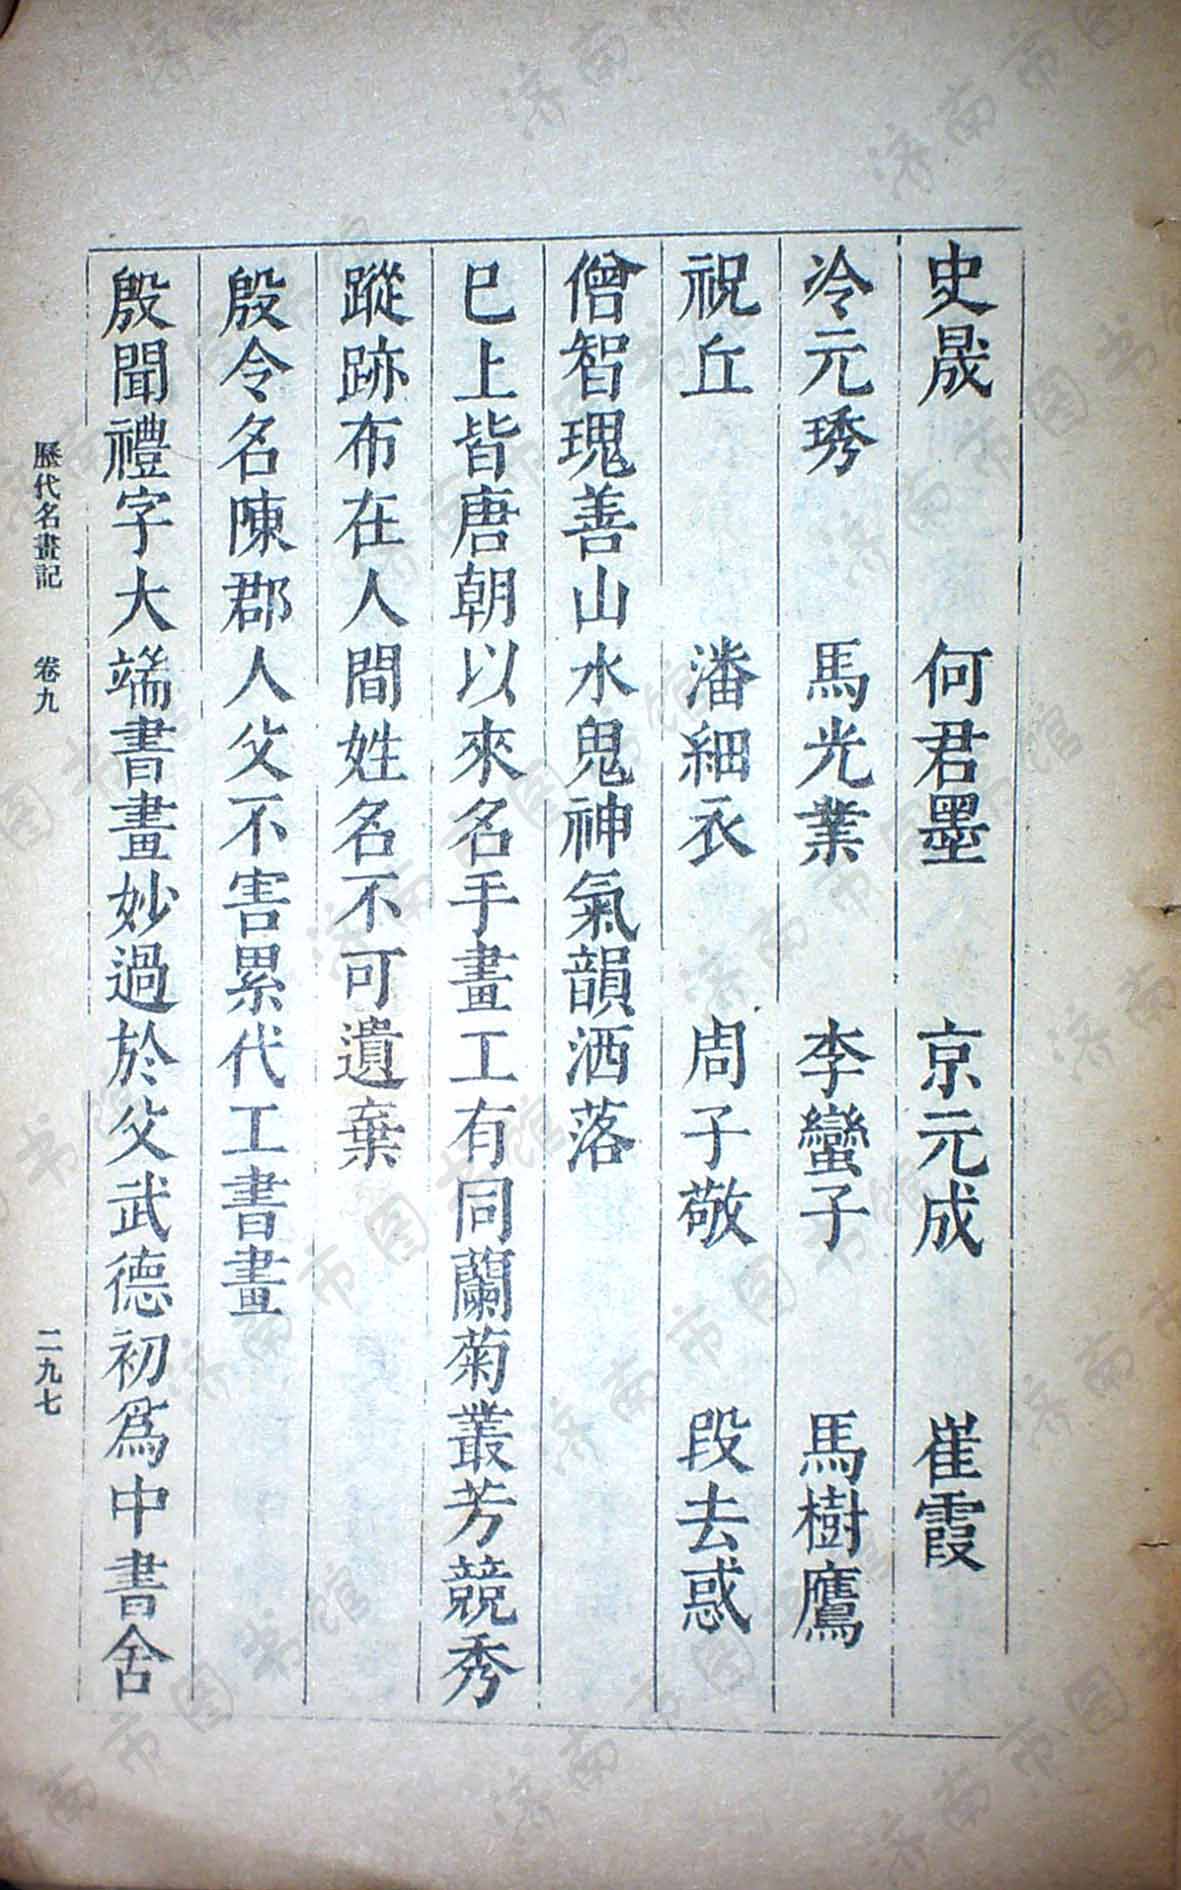 史晟　何君墨　京元成　崔霞
冷元琇　馬光業　李蠻子　馬樹鷹
祝丘　潘細衣　周子敬　段去惑
僧智瑰善山水鬼神氣韻洒落
巳上皆唐朝以來名手畫工有同蘭菊叢芳競秀
蹤跡布在人間姓名不可遺棄
殷令名陳郡人父不害累代工書畫
殷聞禮字大端書畫妙過於父武德初爲中書舍
歷代名畫記　卷九　二九七
济南市图书馆